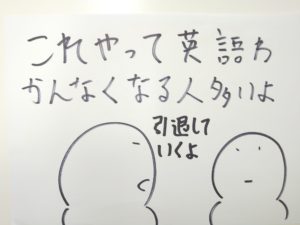 これやって英語わ
かんなくなる人多いよ
引退して
いくよ